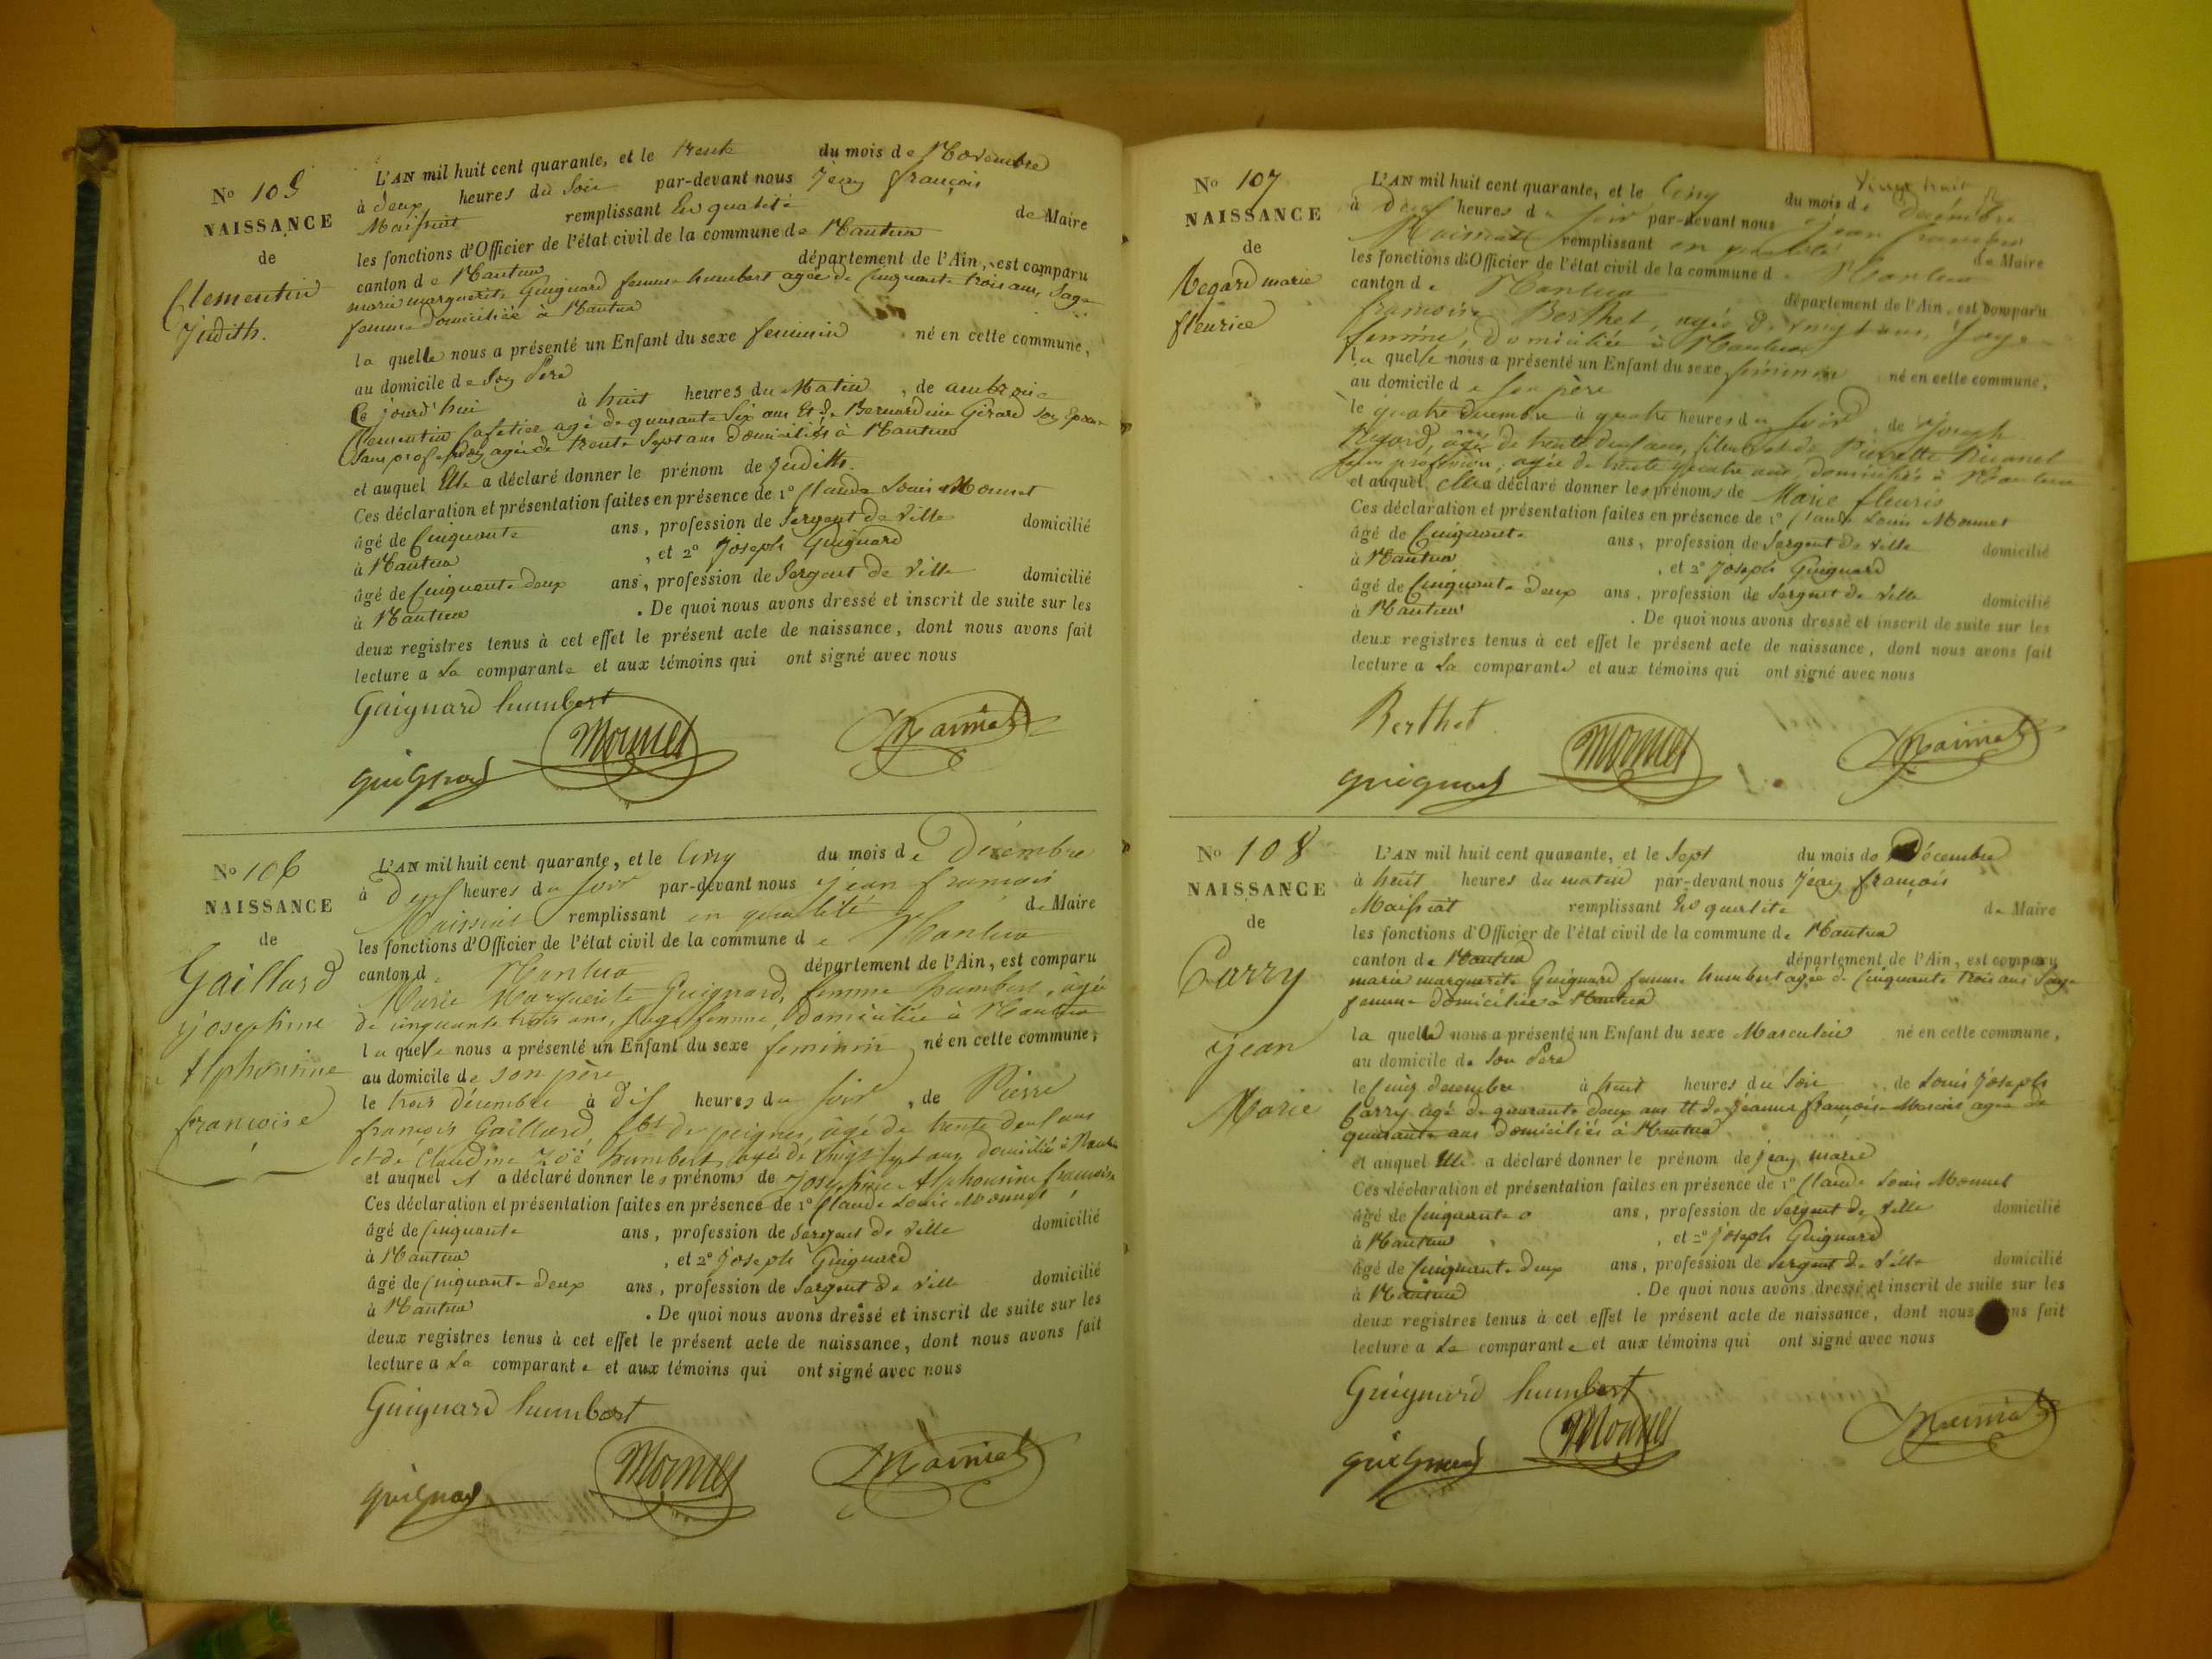 N° 105
NAISSANCE
de
Clementin
Judith.
L'AN mil huit cent quarante, et le trente du mois de Novembre
à deux heures du Soir par-devant nous Jean françois
Maissiat remplissant En qualité de Maire
les fonctions d'Officier de l'état civil de la commune de Nantua
canton de Nantua département de l'Ain, est comparu
marie marguerite Guignard femme humbert agée de Cinquante trois ans, Sage
femme domiciliée à Nantua
la quelle nous a présenté un Enfant du sexe feminin né en cette commune,
au domicile de Son Père
Ce jourd'hui à huit heures du Matin, de ambroise
Clementin Cafetier agé de quarante Six ans Et de Bernardine Girard Son Epouse
Sans profession agée de trente Sept ans domiciliés à Nantua
et auquel Elle a déclaré donner le prénom de Judith.
Ces déclaration et présentation faites en présence de 1° Claude Louis Monnet
âgé de Cinquante ans, profession de Sergent de Ville domicilié
à Nantua, et 2° Joseph Guignard
âgé de Cinquante deux ans, profession de Sergent de Ville domicilié
à Nantua. De quoi nous avons dressé et inscrit de suite sur les
deux registres tenus à cet effet le présent acte de naissance, dont nous avons fait
lecture a La comparante et aux témoins qui ont signé avec nous
Guignard humbert
Monnet
Maissiat
guignard
N° 106
NAISSANCE
de
Gaillard
josephine
Alphonsine
françoise
L'AN mil huit cent quarante, et le Cinq du mois de Décembre
à deux heures du soir par-devant nous jean françois
Maissiat remplissant en qualité de Maire
les fonctions d'Officier de l'état civil de la commune de Nantua
canton de Nantua département de l'Ain, est comparu
Marie Marguerite Guignard, femme humbert, agée
de cinquante trois ans, sage femme, domiciliée à Nantua
la quelle nous a présenté un Enfant du sexe feminin, né en cette commune,
au domicile de son père
le trois Décembre à dix heures du soir, de Pierre
françois Gaillard, fbt de peignes, âgé de trente deux ans
et de Claudine Zoë humbert, agée de vingt sept ans domiciliés à Nantua
et auquel a déclaré donner les prénoms de Josephine Alphonsine françoise
Ces déclaration et présentation faites en présence de 1° Claude Louis Monnet
âgé de Cinquante ans, profession de Sergent de Ville domicilié
à Nantua, et 2° Joseph Guignard
âgé de Cinquante deux ans, profession de Sergent de Ville domicilié
à Nantua. De quoi nous avons dressé et inscrit de suite sur les
deux registres tenus à cet effet le présent acte de naissance, dont nous avons fait
lecture a La comparante et aux témoins qui ont signé avec nous
Guignard humbert
Monnet
Maissiat
guignard
N° 107
NAISSANCE
de
Regard marie
fleurice
vingt huit
L'AN mil huit cent quarante, et le Cinq du mois de decémbre
à deux heures du soir par-devant nous jean françois
Maissiat remplissant en qualité de Maire
les fonctions d'Officier de l'état civil de la commune de Nantua
canton de Nantua département de l'Ain, est comparu
françoise Berthet, agée de vingt ans, sage
femme, domiciliée à Nantua
la quelle nous a présenté un Enfant du sexe féminin né en cette commune,
au domicile de son père
le quatre decembre à quatre heures du soir, de Joseph
Regard, âgé de trente deux ans, et de Pierrette
sans profession, agée de trente quatre ans, domiciliés à Nantua
et auquel elle a déclaré donner les prénoms de Marie fleuris
Ces déclaration et présentation faites en présence de 1° Claude Louis Monnet
âgé de Cinquante ans, profession de Sergent de Ville domicilié
à Nantua, et 2° Joseph Guignard
âgé de Cinquante Deux ans, profession de Sergent de Ville domicilié
à Nantua. De quoi nous avons dressé et inscrit de suite sur les
deux registres tenus à cet effet le présent acte de naissance, dont nous avons fait
lecture a La comparante et aux témoins qui ont signé avec nous
Berthet
Monnet
Maissiat
guignard
N° 108
NAISSANCE
de
Carry
jean
Marie
L'AN mil huit cent quarante, et le Sept du mois de Décembre
à huit heures du matin par-devant nous Jean françois
Maissiat remplissant En qualité de Maire
les fonctions d'Officier de l'état civil de la commune de Nantua
canton de Nantua département de l'Ain, est comparu
marie marguerite Guignard femme humbert agée de Cinquante trois ans Sage
femme domiciliée à Nantua
la quelle nous a présenté un Enfant du sexe Masculin né en cette commune,
au domicile de Son Père
le Cinq decembre à huit heures du Soir, de Louis Joseph
Carry agé de quarante deux ans et de Jeanne françoise agée de
quarante ans domiciliés à Nantua
et auquel Elle a déclaré donner le prénom de jean marie
Ces déclaration et présentation faites en présence de 1° Claude Louis Monnet
âgé de Cinquante ans, profession de Sergent de Ville domicilié
à Nantua, et 2° Joseph Guignard
âgé de Cinquante deux ans, profession de Sergent de Ville domicilié
à Nantua. De quoi nous avons dressé et inscrit de suite sur les
deux registres tenus à cet effet le présent acte de naissance, dont nous ns fait
lecture a La comparante et aux témoins qui ont signé avec nous
Guignard humbert
Monnet
Maissiat
guignard